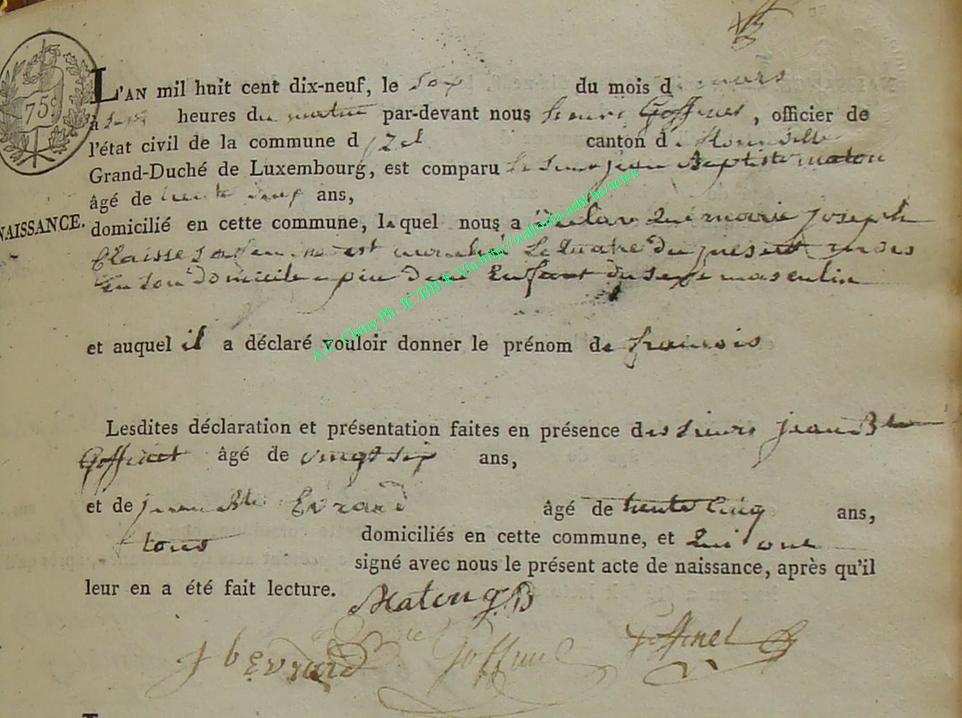 75c
L'AN mil huit cent dix-neuf, le six du mois de mars
à heures du matin par-devant nous henri Goffinet, officier de
l'état civil de la commune d' canton de
Grand-Duché de Luxembourg, est comparu le sieur jean Baptiste maton
âgé de trente ans,
NAISSANCE.
domicilié en cette commune, lequel nous a déclaré que marie joseph
Claisse sa femme est le quatre du present mois
en son domicile enfant du sexe masculin
et auquel il a déclaré vouloir donner le prénom de francois
Lesdites déclaration et présentation faites en présence des sieurs jean Bte
Goffinet âgé de vingt six ans,
et de jean bte Evrard âgé de trente cinq ans,
tous domiciliés en cette commune, et qui ont
signé avec nous le présent acte de naissance, après qu'il
leur en a été fait lecture.
Maton
j b evrard Goffinet Goffinet